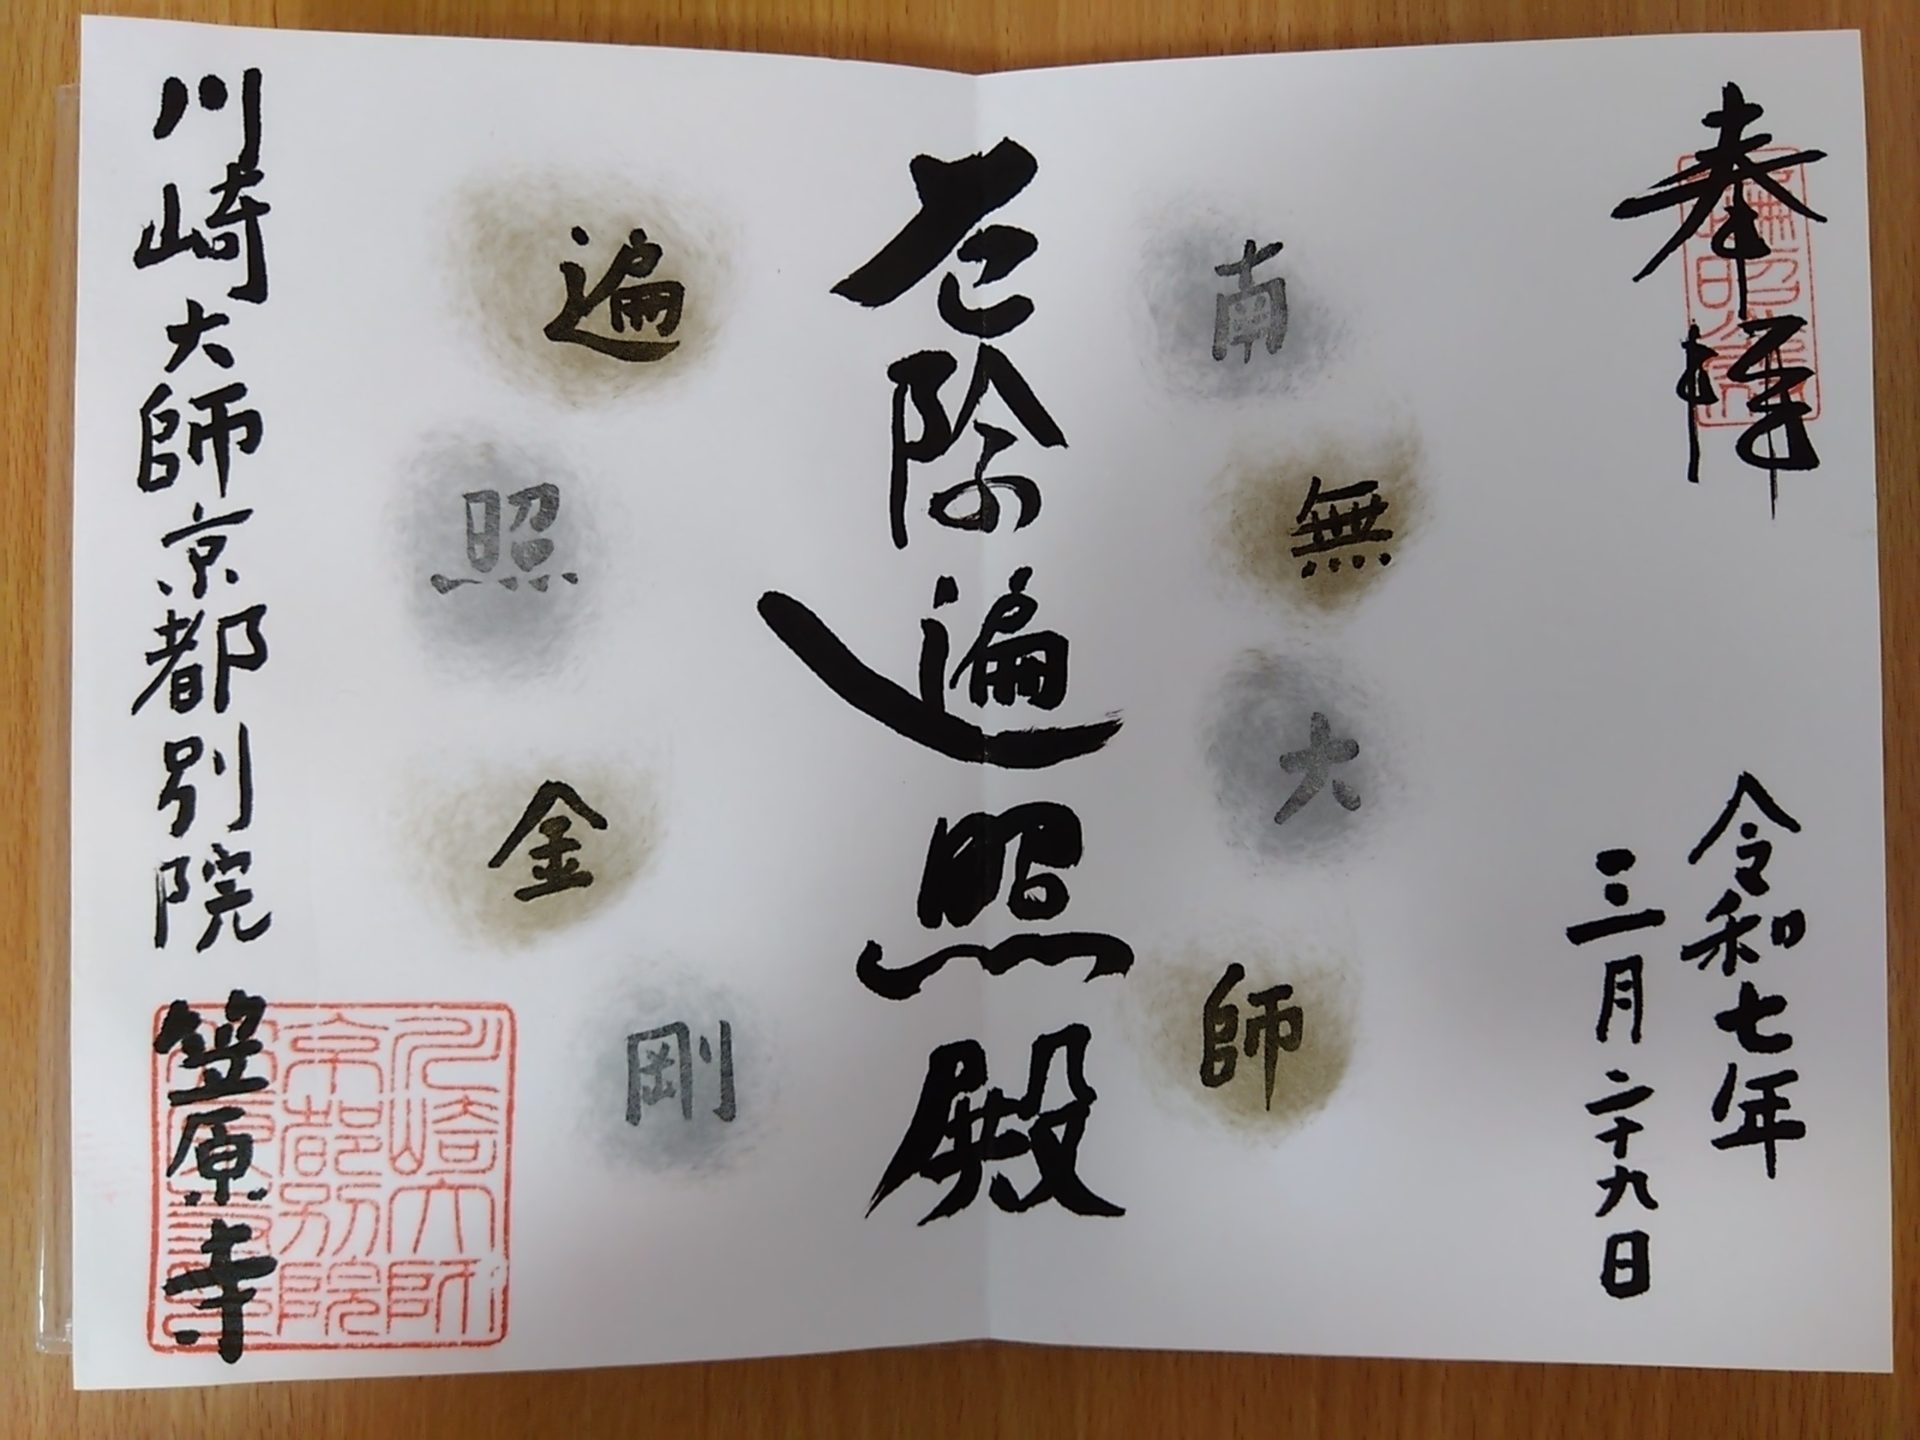 奉拝
令和七年
三月二十九日
南無大師
厄除遍照殿
遍照金剛
川崎大師京都別院 笠原寺
川崎大師
京都別院